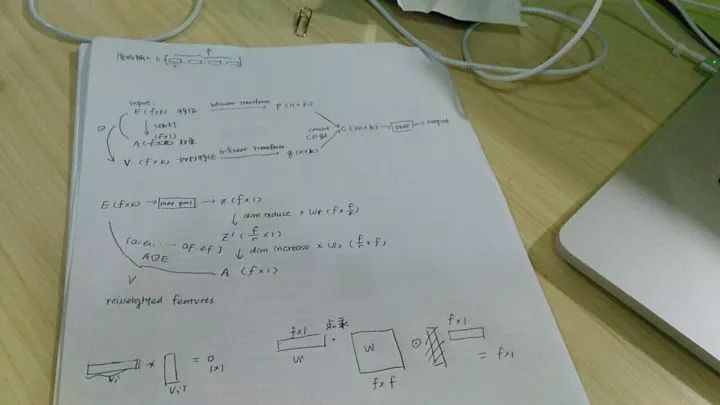 f
input:
E (f×k) 特征 bilinear transform p (n×k)
SENET
(f×1)
A 权重
concat
C (2n×k) → DNN → output
V (f×k) 加权特征 bilinear transform q (n×k)
E (f×k) → max pool → Z (f×1)
↓ dim reduce × W1 (f × f/r)
Z' (f/r × 1)
[a1e1, ..... af·ef] ↓ dim increase × W2 (f/r × f)
A⊙E
V A (f×1)
reweighted features
f×1 点乘 f×1
Vi × ViT = 0
1×1
Vi · W ⊙ = f×1
f×f